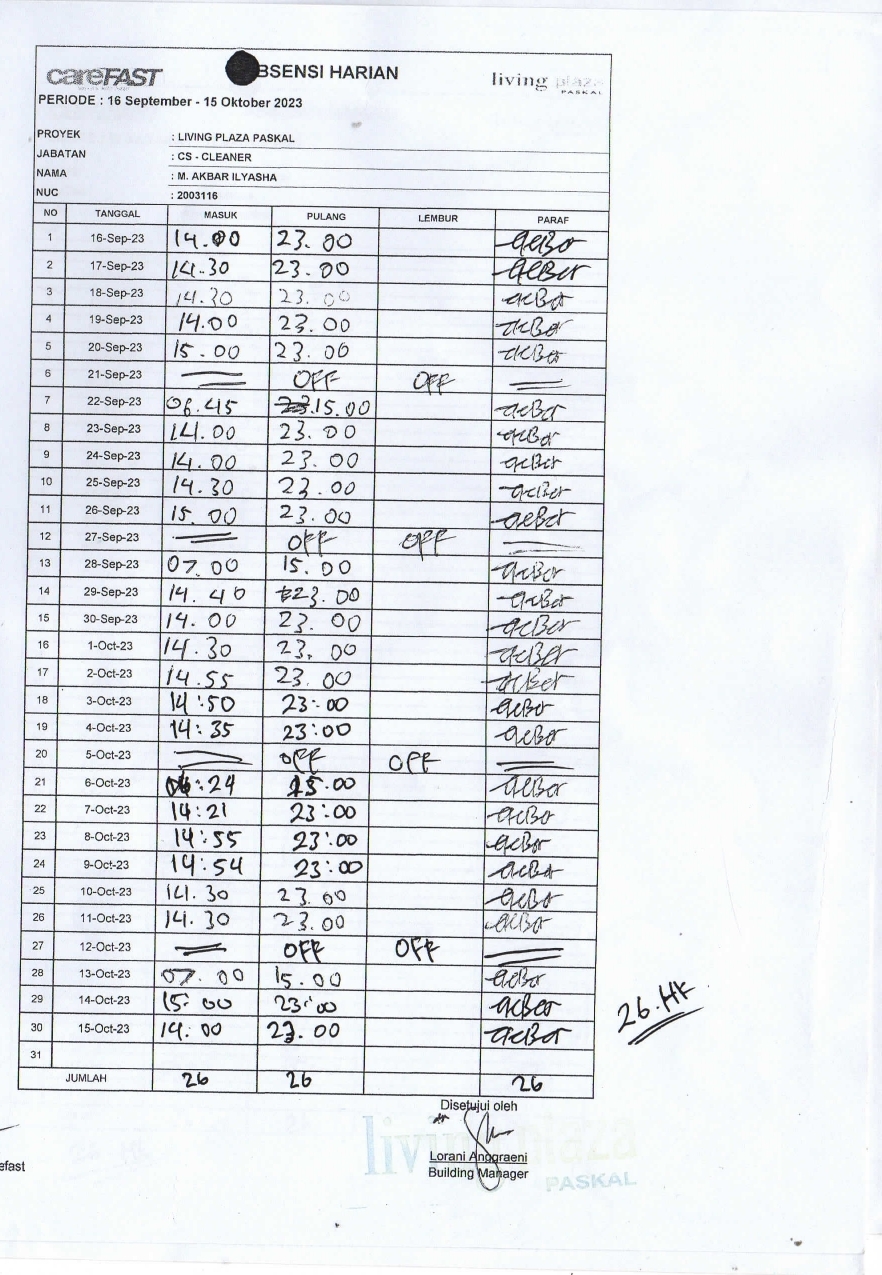 careFAST BSENSI HARIAN living plaza
PASKAL
PERIODE : 16 September - 15 Oktober 2023
PROYEK : LIVING PLAZA PASKAL
JABATAN : CS - CLEANER
NAMA : M. AKBAR ILYASHA
NUC : 2003116
NO TANGGAL MASUK PULANG LEMBUR PARAF
1 16-Sep-23 14.00 23.00
2 17-Sep-23 14.30 23.00
3 18-Sep-23 14.30 23.00
4 19-Sep-23 14.00 23.00
5 20-Sep-23 15.00 23.00
6 21-Sep-23 OFF OFF
7 22-Sep-23 06.45 15.00
8 23-Sep-23 14.00 23.00
9 24-Sep-23 14.00 23.00
10 25-Sep-23 14.30 23.00
11 26-Sep-23 15.00 23.00
12 27-Sep-23 OFF OFF
13 28-Sep-23 07.00 15.00
14 29-Sep-23 14.40 23.00
15 30-Sep-23 14.00 23.00
16 1-Oct-23 14.30 23.00
17 2-Oct-23 14.55 23.00
18 3-Oct-23 14:50 23:00
19 4-Oct-23 14:35 23:00
20 5-Oct-23 OFF OFF
21 6-Oct-23 06:24 15:00
22 7-Oct-23 14:21 23:00
23 8-Oct-23 14:55 23:00
24 9-Oct-23 14:54 23:00
25 10-Oct-23 14.30 23.00
26 11-Oct-23 14.30 23.00
27 12-Oct-23 OFF OFF
28 13-Oct-23 07.00 15.00
29 14-Oct-23 15:00 23:00
30 15-Oct-23 14.00 23.00
26.HK
31
JUMLAH 26 26 26
Disetujui oleh
living plaza
efast Lorani Anggraeni
Building Manager
PASKAL